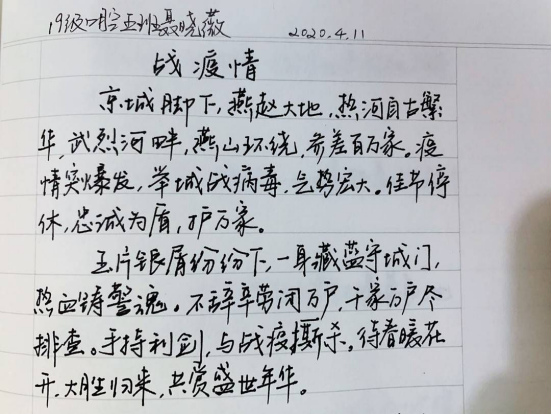 19级口腔五班聂晓薇 2020.4.11
战疫情
京城脚下,燕赵大地,热河自古繁
华,武烈河畔,燕山环绕,参差百万家。疫
情突爆发,举城战病毒,气势宏大。佳节停
休,忠诚为盾,护万家。
玉片银屑纷纷下,一身藏蓝守城门,
热血铸警魂。不辞辛劳闭万户,千家万户尽
排查。手持利剑,与战疫撕杀。待春暖花
开,大胜归来,共赏盛世年华。